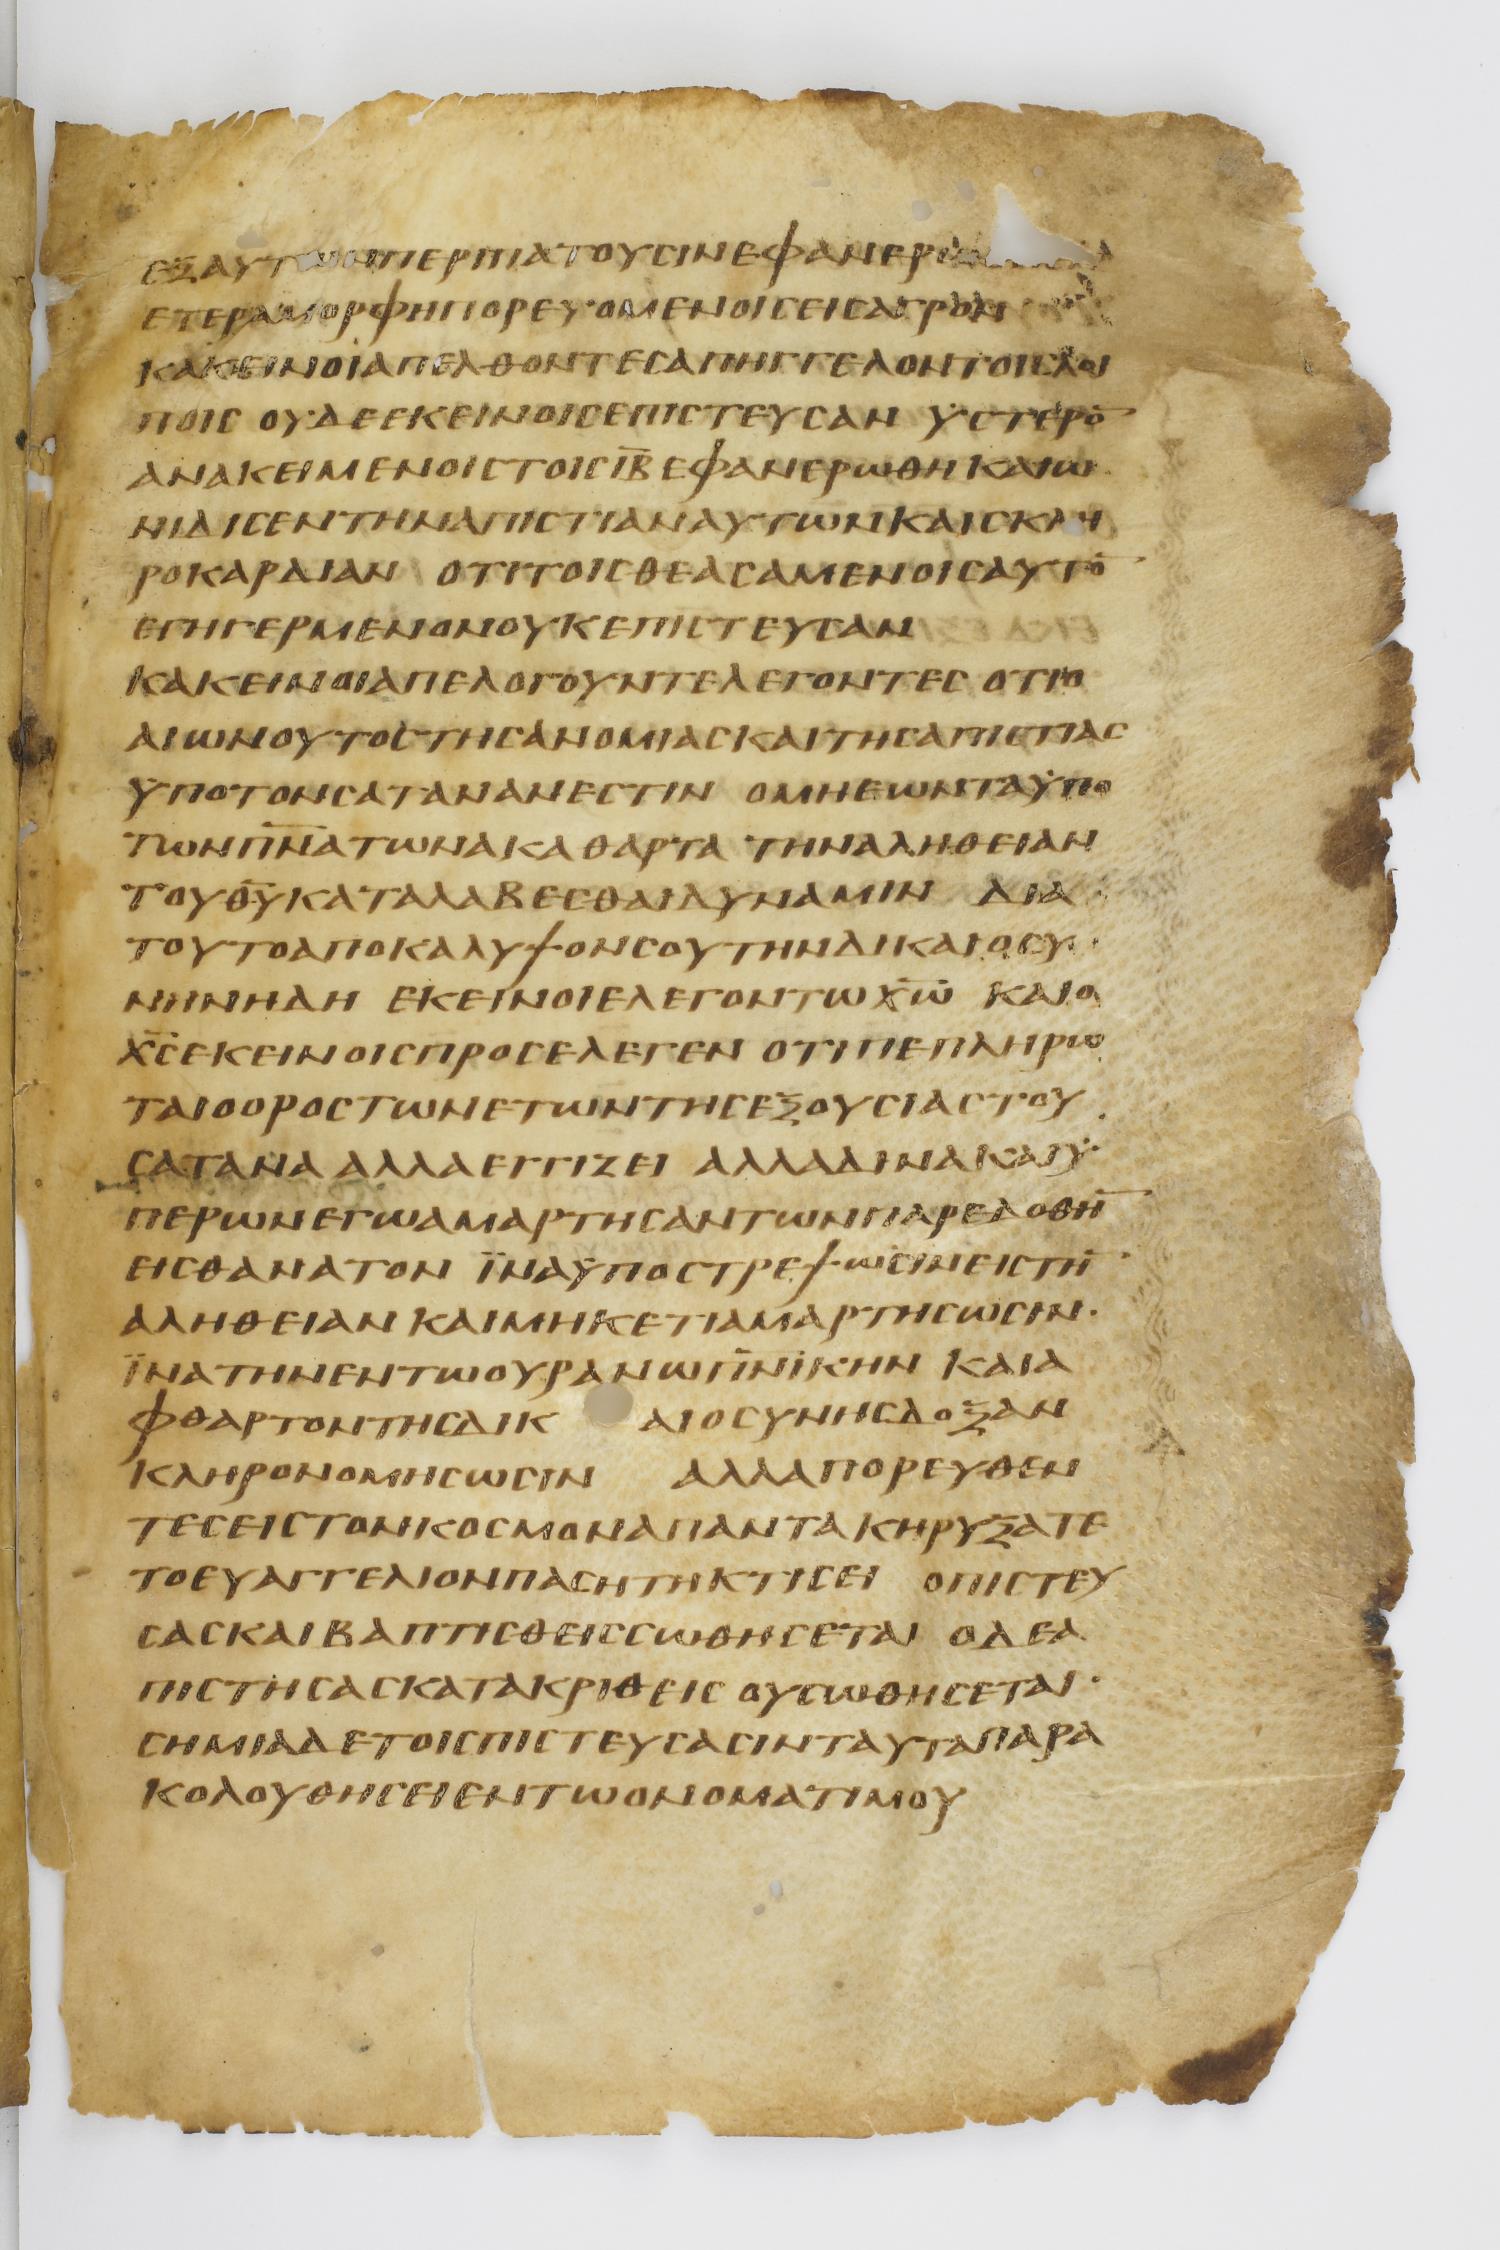 ΕΞΑΥΤΩΝΠΕΡΙΠΑΤΟΥϹΙΝΕΦΑΝΕΡ
ΕΤΕΡΑΜΟΡΦΗΠΟΡΕΥΟΜΕΝΟΙϹΕΙϹΑΓΡΟΝ
ΚΑΚΕΙΝΟΙΑΠΕΛΘΟΝΤΕϹΑΠΗΓΓΕΛΟΝΤΟΙϹΛΟΙ
ΠΟΙϹ ΟΥΔΕΕΚΕΙΝΟΙϹΕΠΙϹΤΕΥϹΑΝ ΫϹΤΕΡΟ̅
ΑΝΑΚΕΙΜΕΝΟΙϹΤΟΙϹΙ̅Β̅ΕΦΑΝΕΡΩΘΗΚΑΙΩ
ΝΙΔΙϹΕΝΤΗΝΑΠΙϹΤΙΑΝΑΥΤΩΝΚΑΙϹΚΛΗ
ΡΟΚΑΡΔΙΑΝ ΟΤΙΤΟΙϹΘΕΑϹΑΜΕΝΟΙϹΑΥΤΟ̅
ΕΓΗΓΕΡΜΕΝΟΝΟΥΚΕΠΙϹΤΕΥϹΑΝ
ΚΑΚΕΙΝΟΙΑΠΕΛΟΓΟΥΝΤΕΛΕΓΟΝΤΕϹ ΟΤΙΟ
ΑΙΩΝΟΥΤΟϹΤΗϹΑΝΟΜΙΑϹΚΑΙΤΗϹΑΠΙϹΤΙΑϹ
ΫΠΟΤΟΝϹΑΤΑΝΑΝΕϹΤΙΝ ΟΜΗΕΩΝΤΑΫΠΟ
ΤΩΝΠ̅Ν̅Α̅ΤΩΝΑΚΑΘΑΡΤΑ ΤΗΝΑΛΗΘΕΙΑΝ
ΤΟΥΘ̅Υ̅ΚΑΤΑΛΑΒΕϹΘΑΙΔΥΝΑΜΙΝ ΔΙΑ
ΤΟΥΤΟΑΠΟΚΑΛΥΨΟΝϹΟΥΤΗΝΔΙΚΑΙΟϹΥ
ΝΗΝΗΔΗ ΕΚΕΙΝΟΙΕΛΕΓΟΝΤΩΧ̅Ω̅ ΚΑΙΟ
Χ̅Ϲ̅ΕΚΕΙΝΟΙϹΠΡΟϹΕΛΕΓΕΝ ΟΤΙΠΕΠΛΗΡΩ
ΤΑΙΟΟΡΟϹΤΩΝΕΤΩΝΤΗϹΕΞΟΥϹΙΑϹΤΟΥ
ϹΑΤΑΝΑ ΑΛΛΑΕΓΓΙΖΕΙ ΑΛΛΑΔΙΝΑΚΑΙΫ
ΠΕΡΩΝΕΓΩΑΜΑΡΤΗϹΑΝΤΩΝΠΑΡΕΔΟΘΗ̅
ΕΙϹΘΑΝΑΤΟΝ ΪΝΑΫΠΟϹΤΡΕΨΩϹΙΝΕΙϹΤΗ̅
ΑΛΗΘΕΙΑΝΚΑΙΜΗΚΕΤΙΑΜΑΡΤΗϹΩϹΙΝ·
ΪΝΑΤΗΝΕΝΤΩΟΥΡΑΝΩΠ̅Ν̅ΙΚΗΝ ΚΑΙΑ
ΦΘΑΡΤΟΝΤΗϹΔΙΚ ΑΙΟϹΥΝΗϹΔΟΞΑΝ
ΚΛΗΡΟΝΟΜΗϹΩϹΙΝ ΑΛΛΑΠΟΡΕΥΘΕΝ
ΤΕϹΕΙϹΤΟΝΚΟϹΜΟΝΑΠΑΝΤΑΚΗΡΥΞΑΤΕ
ΤΟΕΥΑΓΓΕΛΙΟΝΠΑϹΗΤΗΚΤΙϹΕΙ ΟΠΙϹΤΕΥ
ϹΑϹΚΑΙΒΑΠΤΙϹΘΕΙϹϹΩΘΗϹΕΤΑΙ ΟΔΕΑ
ΠΙϹΤΗϹΑϹΚΑΤΑΚΡΙΘΕΙϹ ΟΥϹΩΘΗϹΕΤΑΙ·
ϹΗΜΙΑΔΕΤΟΙϹΠΙϹΤΕΥϹΑϹΙΝΤΑΥΤΑΠΑΡΑ
ΚΟΛΟΥΘΗϹΕΙΕΝΤΩΟΝΟΜΑΤΙΜΟΥ